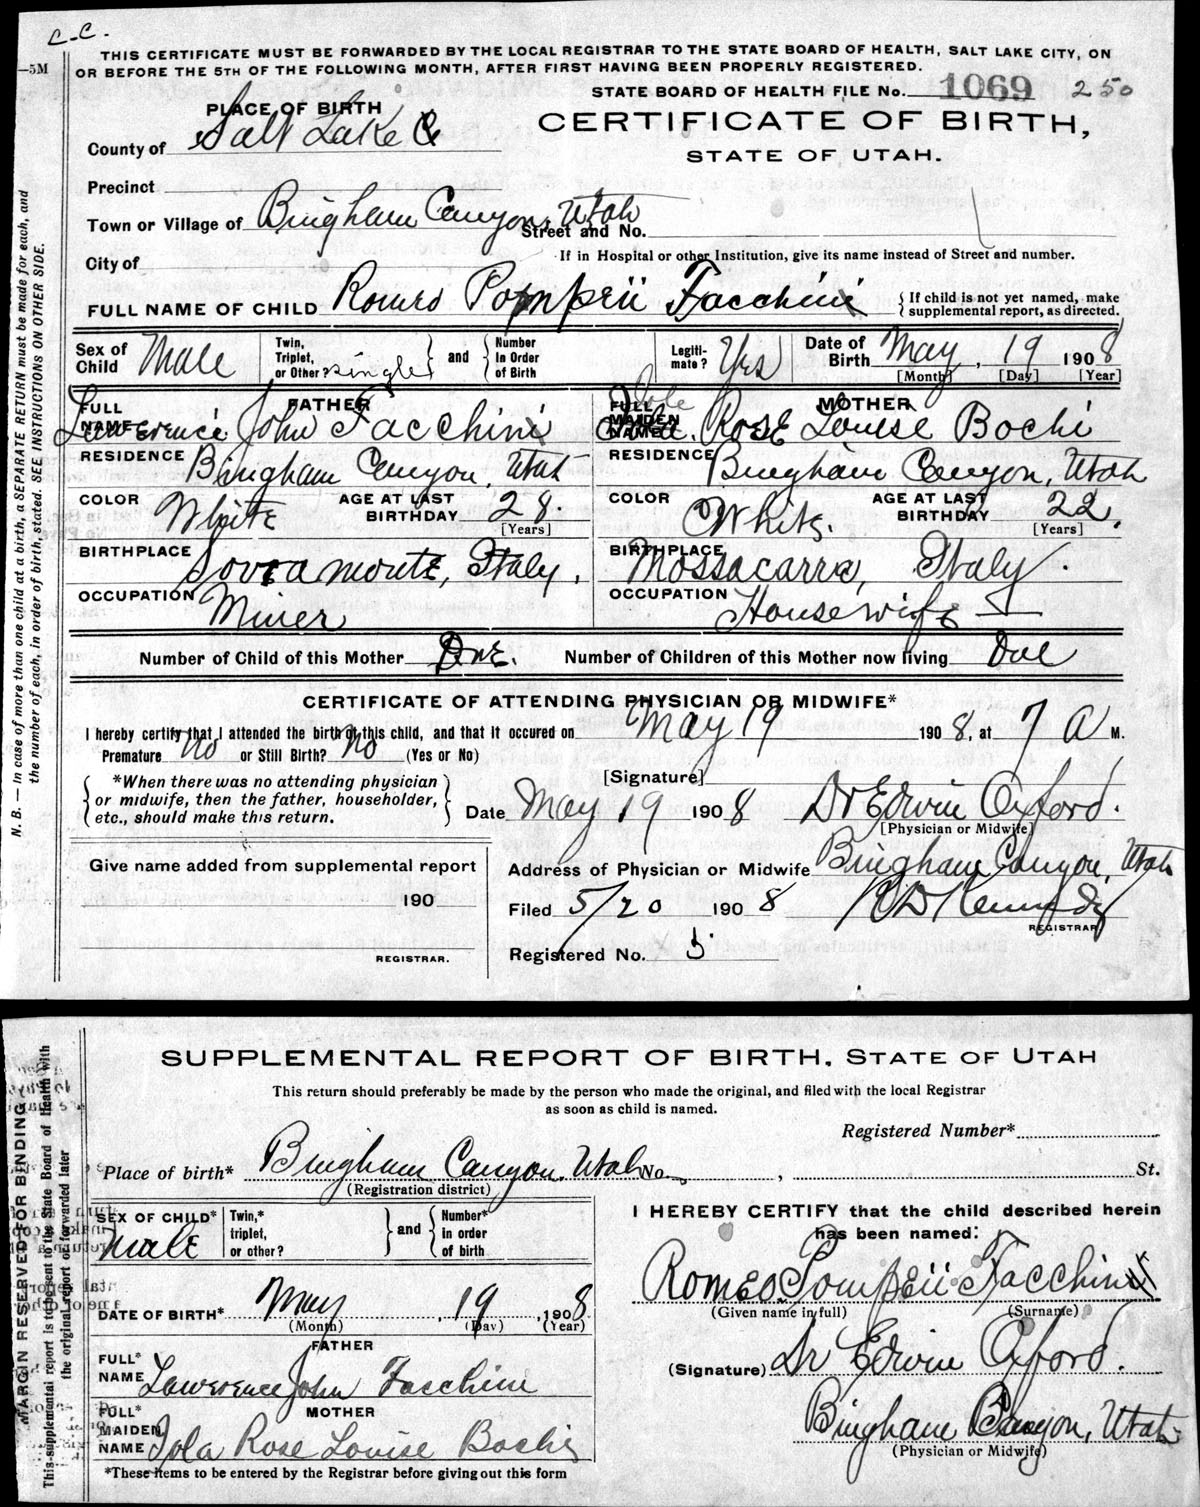 C.C.
THIS CERTIFICATE MUST BE FORWARDED BY THE LOCAL REGISTRAR TO THE STATE BOARD OF HEALTH, SALT LAKE CITY, ON
OR BEFORE THE 5TH OF THE FOLLOWING MONTH, AFTER FIRST HAVING BEEN PROPERLY REGISTERED.
—5M
STATE BOARD OF HEALTH FILE No. 1069 250
PLACE OF BIRTH
CERTIFICATE OF BIRTH,
STATE OF UTAH.
County of Salt Lake Co
Precinct
Town or Village of Bingham Canyon, Utah
Street and No.
City of
If in Hospital or other Institution, give its name instead of Street and number.
FULL NAME OF CHILD Romeo Pompeii Facchini
{ If child is not yet named, make
supplemental report, as directed.
Sex of Child Male
Twin, Triplet, or Other? single } and { Number In Order of Birth
Legiti-mate? Yes
Date of Birth May, 19 1908
[Month] [Day] [Year]
FATHER
FULL NAME Lawerence John Facchini
RESIDENCE Bingham Canyon, Utah
COLOR White AGE AT LAST BIRTHDAY 28.
[Years]
BIRTHPLACE Sovramonte, Italy.
OCCUPATION Miner
MOTHER
FULL MAIDEN NAME Iola Rose Louise Bochi
RESIDENCE Bingham Canyon, Utah
COLOR White. AGE AT LAST BIRTHDAY 22.
[Years]
BIRTHPLACE Mossacarra, Italy.
OCCUPATION Housewife
Number of Child of this Mother One. Number of Children of this Mother now living One
CERTIFICATE OF ATTENDING PHYSICIAN OR MIDWIFE*
I hereby certify that I attended the birth of this child, and that it occured on May 19 1908, at 7 A M.
Premature No or Still Birth? No (Yes or No)
[Signature]
{ *When there was no attending physician
or midwife, then the father, householder,
etc., should make this return. }
Date May 19 1908 Dr Edwin Oxford.
[Physician or Midwife]
Give name added from supplemental report
190
REGISTRAR.
Address of Physician or Midwife Bingham Canyon, Utah
Filed 5/20 1908 R D Kennedy
REGISTRAR
Registered No. 5
N. B. — In case of more than one child at a birth, a SEPARATE RETURN must be made for each, and
the number of each, in order of birth, stated. SEE INSTRUCTIONS ON OTHER SIDE.
SUPPLEMENTAL REPORT OF BIRTH, STATE OF UTAH
This return should preferably be made by the person who made the original, and filed with the local Registrar
as soon as child is named.
Registered Number*
Place of birth* Bingham Canyon, Utah No. , St.
(Registration district)
SEX OF CHILD* Male
Twin,* triplet, or other? } and { Number* in order of birth
DATE OF BIRTH* May, 19, 1908
(Month) (Day) (Year)
FATHER
FULL* NAME Lawerence John Facchini
MOTHER
FULL* MAIDEN NAME Iola Rose Louise Bochi
*These items to be entered by the Registrar before giving out this form
I HEREBY CERTIFY that the child described herein
has been named:
Romeo Pompeii Facchini
(Given name in full) (Surname)
(Signature) Dr Edwin Oxford.
Bingham Canyon, Utah
(Physician or Midwife)
MARGIN RESERVED FOR BINDING
This supplemental report is to be sent to the State Board of Health with
the original report or forwarded later